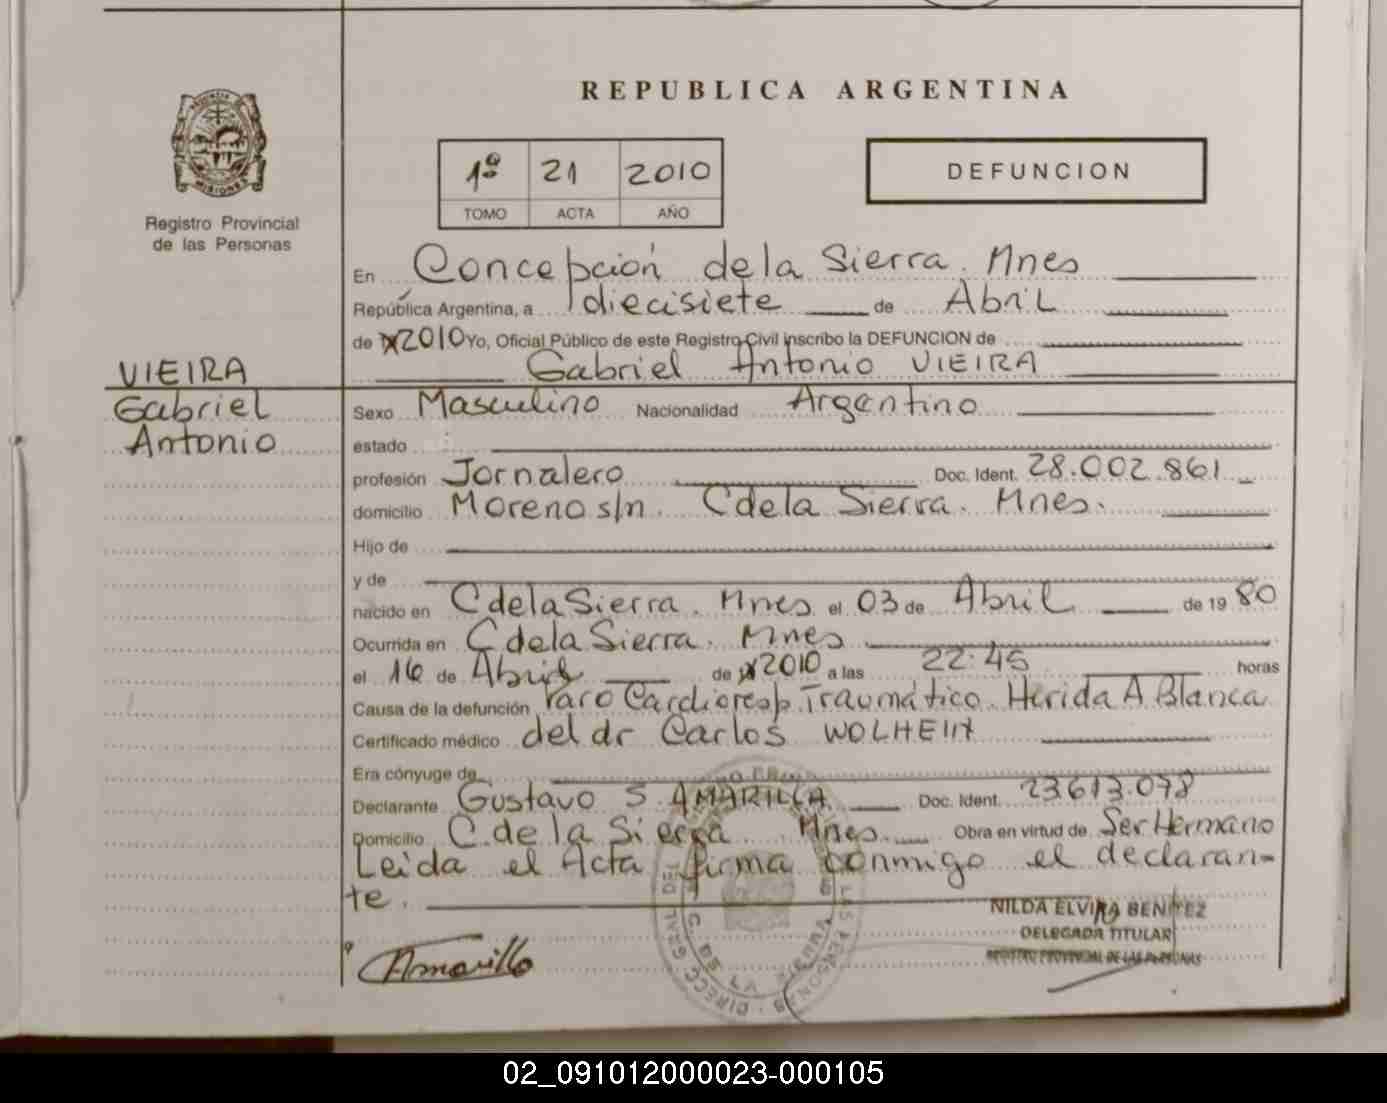 REPUBLICA ARGENTINA
1º 21 2010
TOMO ACTA AÑO
DEFUNCION
MISIONES
Registro Provincial
de las Personas
En Concepción de la Sierra. Mnes
República Argentina, a diecisiete de Abril
de 2010 Yo, Oficial Público de este Registro Civil inscribo la DEFUNCION de
Gabriel Antonio VIEIRA
VIEIRA
Gabriel
Antonio
Sexo Masculino Nacionalidad Argentino
estado
profesión Jornalero Doc. Ident. 28.002.861
domicilio Moreno s/n. C de la Sierra. Mnes.
Hijo de
y de
nacido en C de la Sierra. Mnes el 03 de Abril de 19 80
Ocurrida en C de la Sierra. Mnes
el 16 de Abril de 2010 a las 22.45 horas
Causa de la defunción Paro Cardioresp. Traumático. Herida A Blanca
Certificado médico del dr Carlos
Era cónyuge de
Declarante Gustavo S. AMARILLA Doc. Ident. 23613.078
Domicilio C. de la Sierra Mnes. Obra en virtud de Ser Hermano
Leida el Acta firma conmigo el declaran-
te.
Amarilla
NILDA ELVIRA BENITEZ
DELEGADA TITULAR
REGISTRO PROVINCIAL DE LAS PERSONAS
02_091012000023-000105